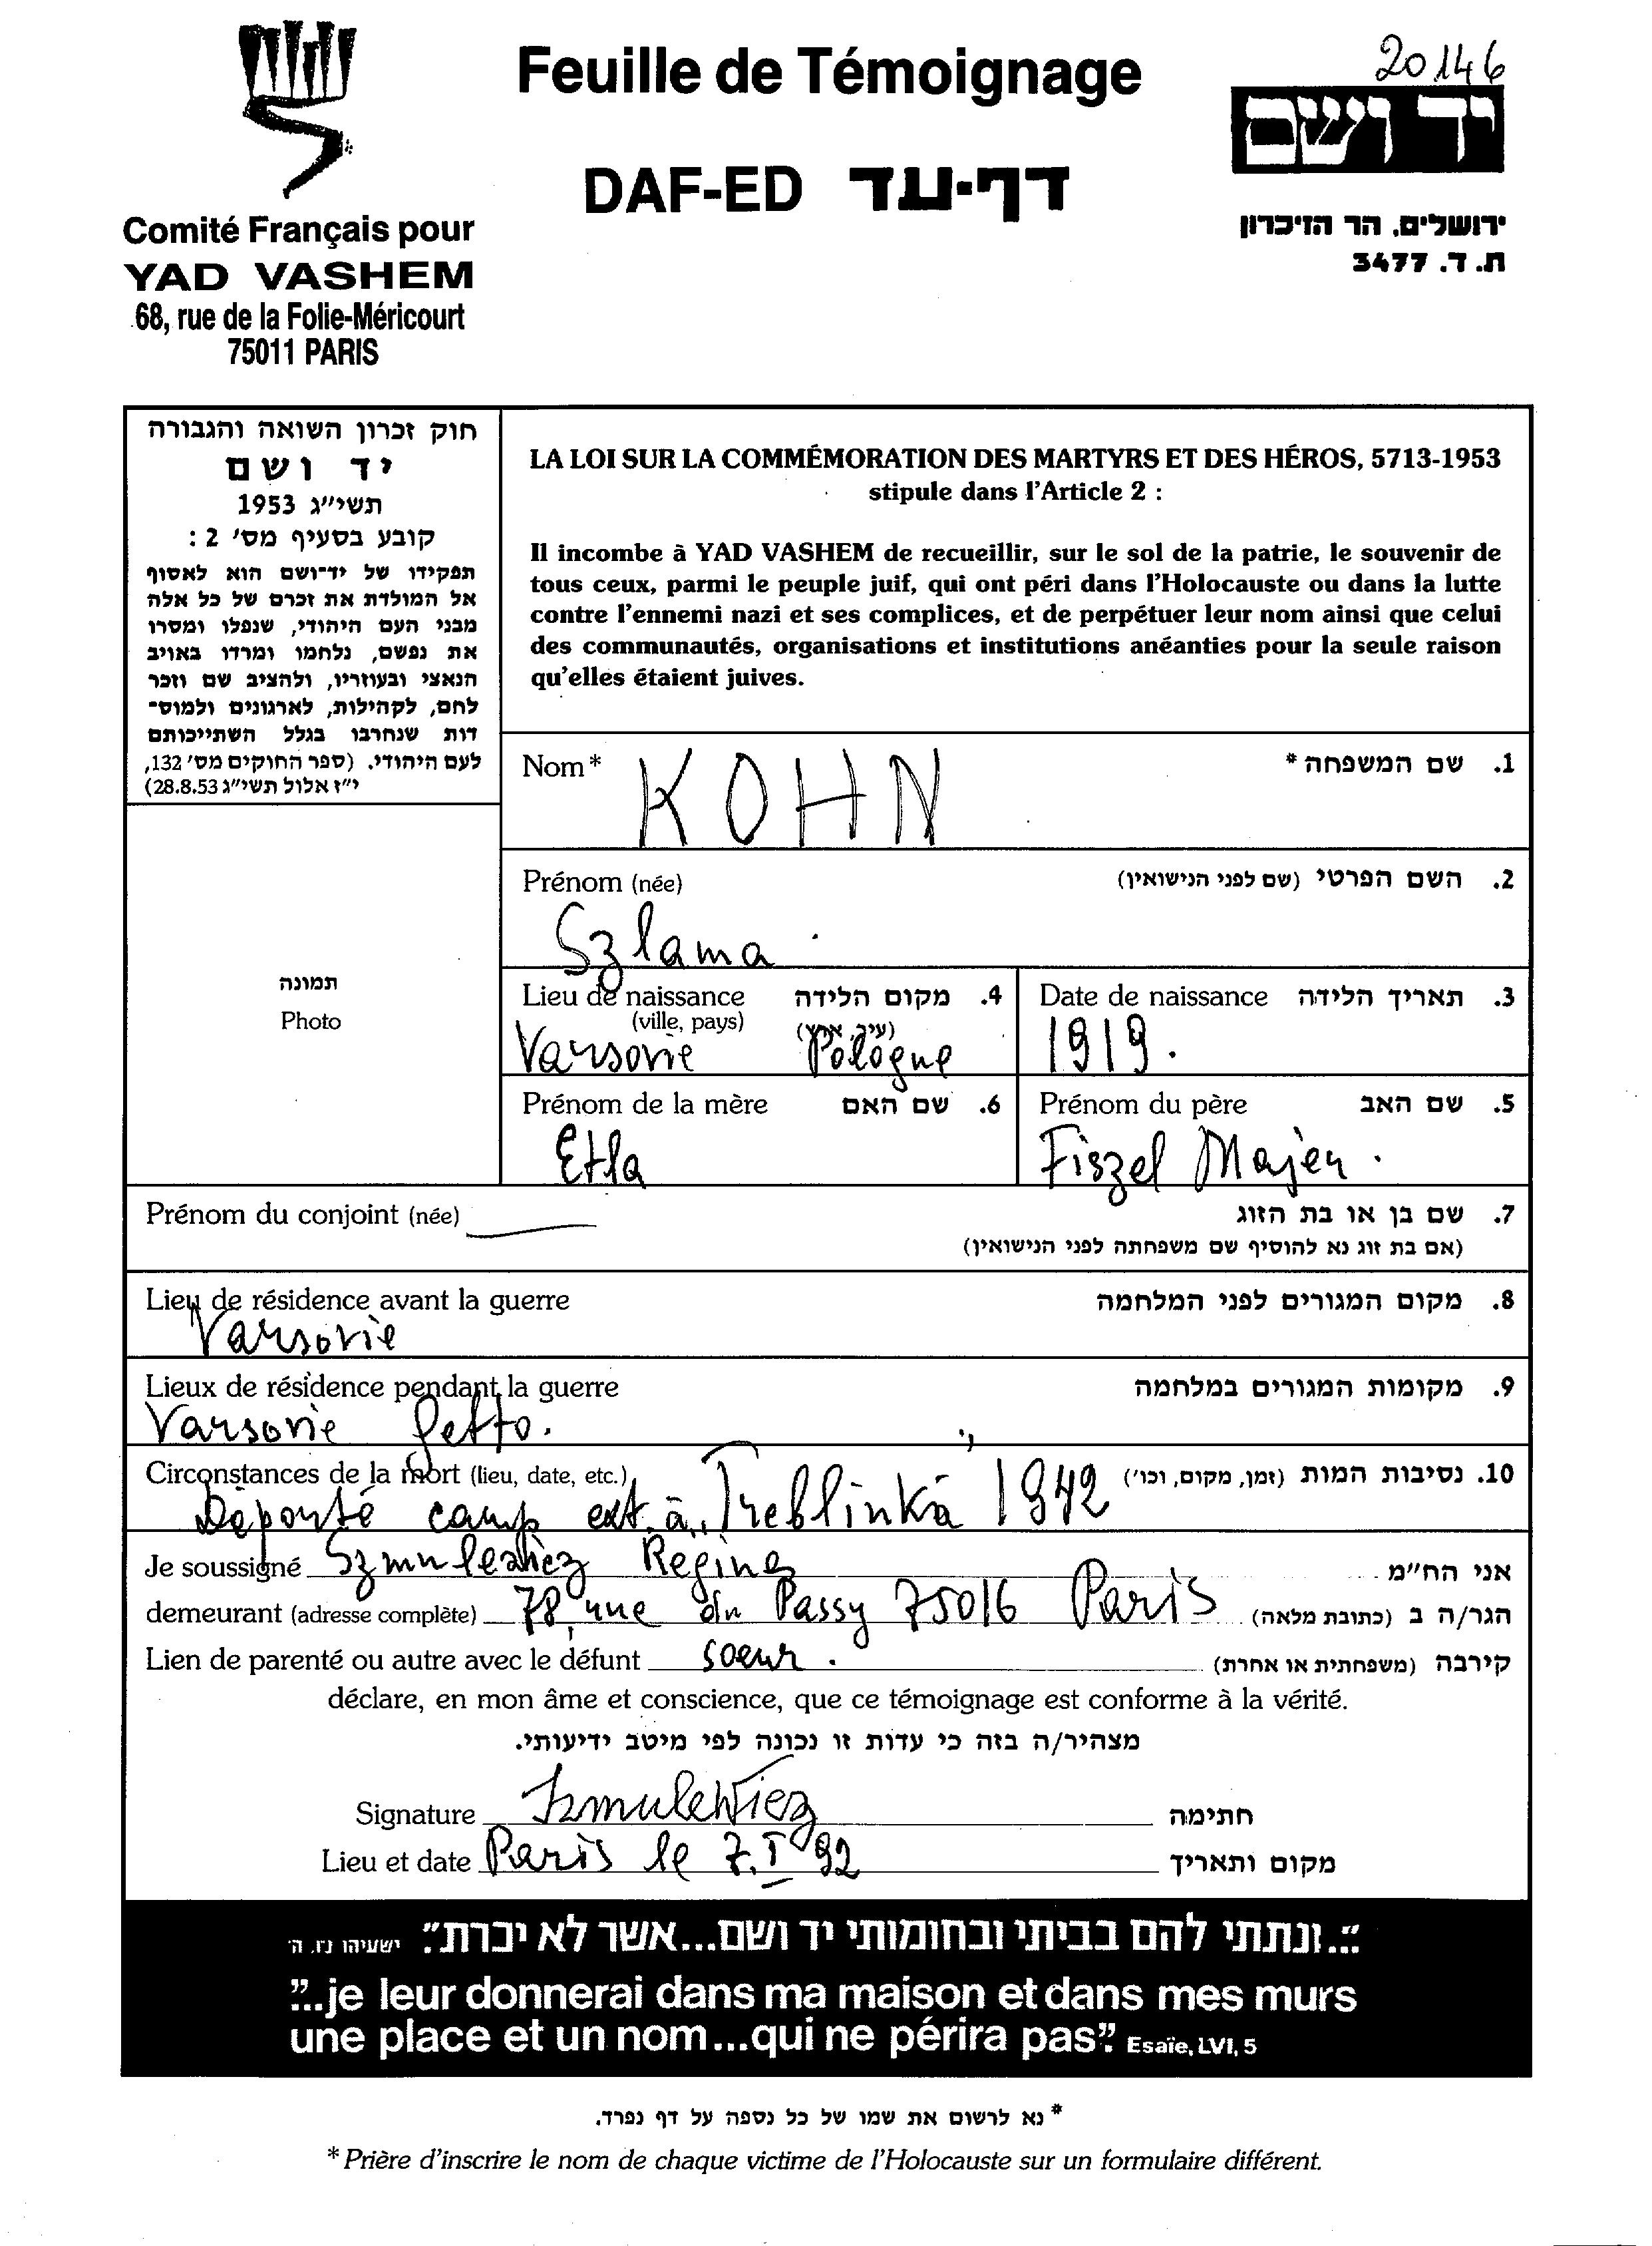 Feuille de Témoignage
20146
יד ושם
DAF-ED דף-עד
ירושלים, הר הזיכרון
ת. ד. 3477
Comité Français pour
YAD VASHEM
68, rue de la Folie-Méricourt
75011 PARIS
חוק זכרון השואה והגבורה
יד ושם
תשי״ג 1953
קובע בסעיף מס׳ 2 :
תפקידו של יד־ושם הוא לאסוף
אל המולדת את זכרם של כל אלה
מבני העם היהודי, שנפלו ומסרו
את נפשם, נלחמו ומרדו באויב
הנאצי ובעוזריו, ולהציב שם וזכר
להם, לקהילות, לארגונים ולמוס־
דות שנחרבו בגלל השתייכותם
לעם היהודי. (ספר החוקים מס׳ 132,
י״ז אלול תשי״ג 28.8.53)
LA LOI SUR LA COMMÉMORATION DES MARTYRS ET DES HÉROS, 5713-1953
stipule dans l'Article 2 :
Il incombe à YAD VASHEM de recueillir, sur le sol de la patrie, le souvenir de
tous ceux, parmi le peuple juif, qui ont péri dans l'Holocauste ou dans la lutte
contre l'ennemi nazi et ses complices, et de perpétuer leur nom ainsi que celui
des communautés, organisations et institutions anéanties pour la seule raison
qu'elles étaient juives.
תמונה
Photo
Nom* KOHN 1. שם המשפחה *
Prénom (née) 2. השם הפרטי (שם לפני הנישואין)
Szlama
Lieu de naissance 4. מקום הלידה
(ville, pays) (עיר, ארץ)
Varsovie Pologne
Date de naissance 3. תאריך הלידה
1919.
Prénom de la mère 6. שם האם
Etla
Prénom du père 5. שם האב
Fiszel Majer.
Prénom du conjoint (née) 7. שם בן או בת הזוג
(אם בת זוג נא להוסיף שם משפחתה לפני הנישואין)
Lieu de résidence avant la guerre 8. מקום המגורים לפני המלחמה
Varsovie
Lieux de résidence pendant la guerre 9. מקומות המגורים במלחמה
Varsovie Getto.
Circonstances de la mort (lieu, date, etc.) 10. נסיבות המות (זמן, מקום, וכו׳)
Déporté camp ext. à "Treblinka" 1942
Je soussigné Szmulewicz Regine אני הח״מ
demeurant (adresse complète) 78, rue du Passy 75016 Paris הגר/ה ב (כתובת מלאה)
Lien de parenté ou autre avec le défunt soeur. קירבה (משפחתית או אחרת)
déclare, en mon âme et conscience, que ce témoignage est conforme à la vérité.
מצהיר/ה בזה כי עדות זו נכונה לפי מיטב ידיעותי.
Signature Szmulewicz חתימה
Lieu et date Paris le 7.I 92 מקום ותאריך
"...ונתתי להם בביתי ובחומותי יד ושם...אשר לא יכרת". ישעיהו נו, ה'
"...je leur donnerai dans ma maison et dans mes murs
une place et un nom...qui ne périra pas". Esaïe, LVI, 5
* נא לרשום את שמו של כל נספה על דף נפרד.
* Prière d'inscrire le nom de chaque victime de l'Holocauste sur un formulaire différent.